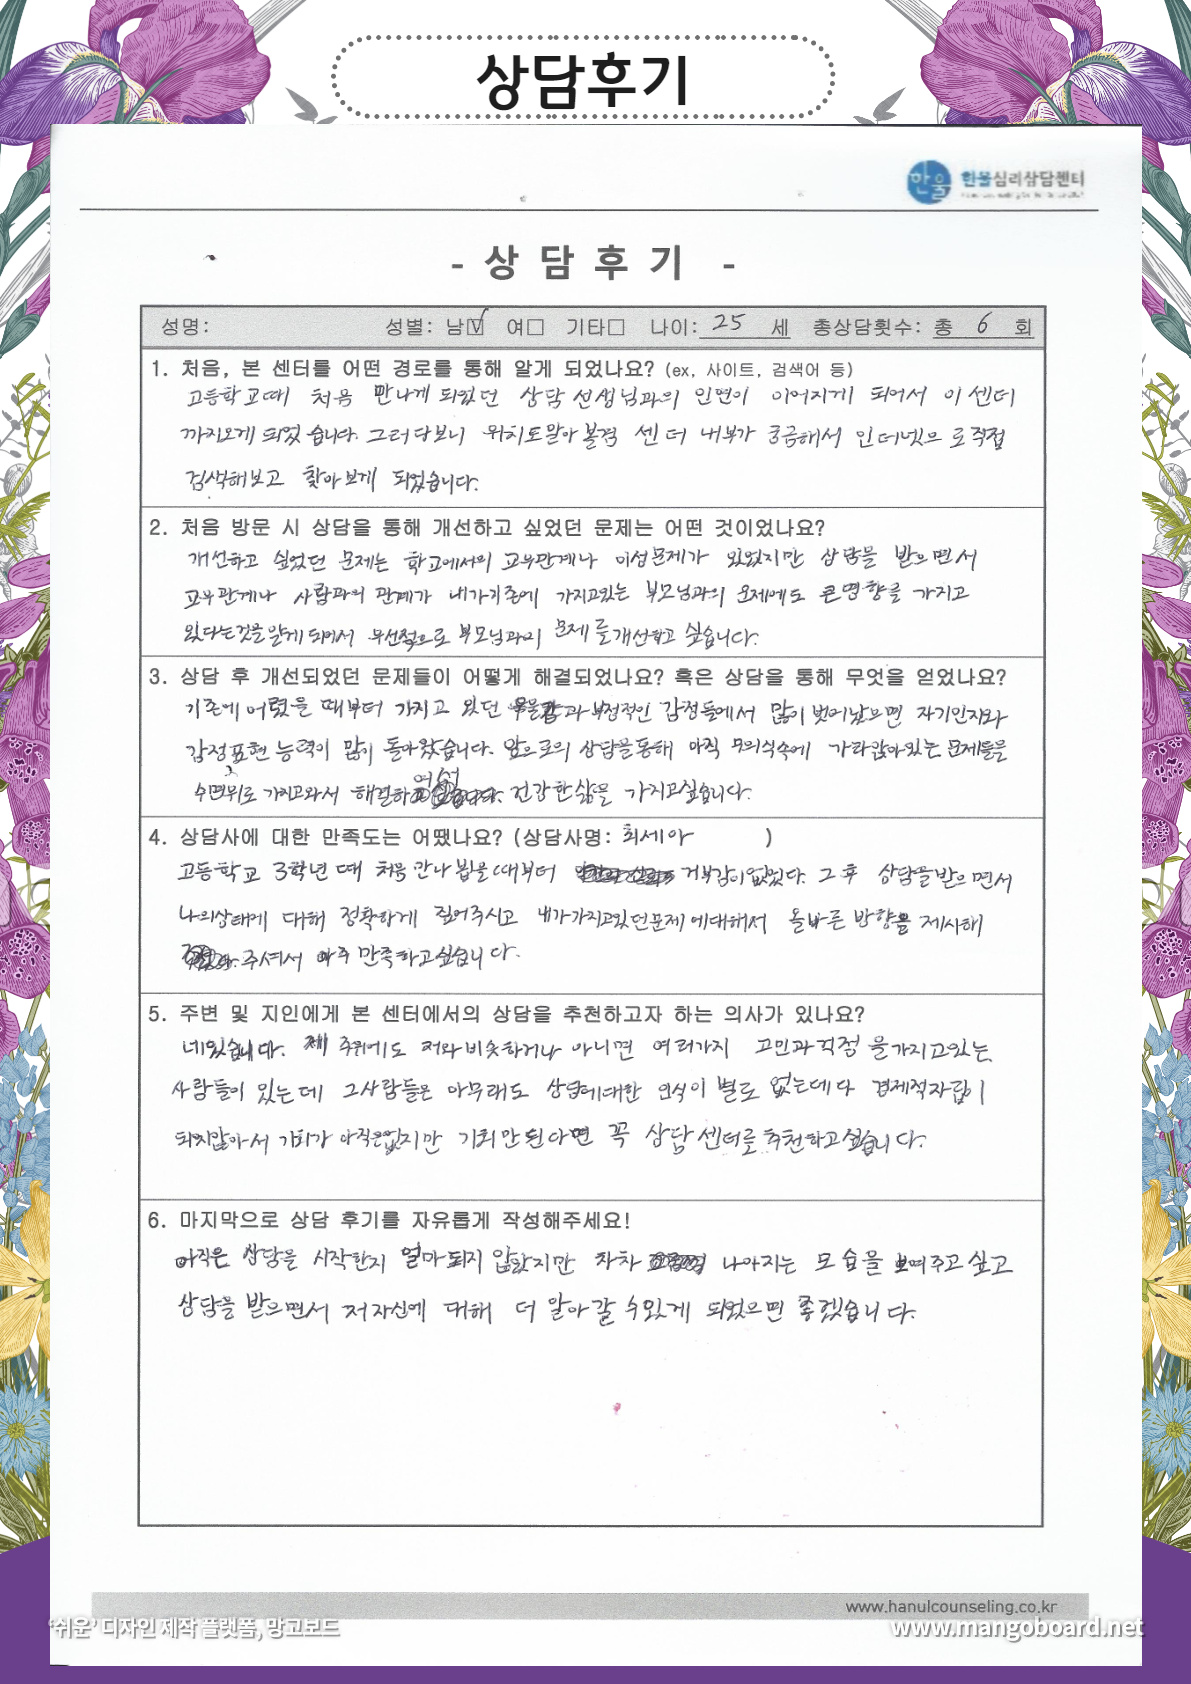 상담후기
한울 한울심리상담센터
- 상 담 후 기 -
성명: 성별: 남☑ 여□ 기타□ 나이: 25 세 총상담횟수: 총 6 회
1. 처음, 본 센터를 어떤 경로를 통해 알게 되었나요? (ex, 사이트, 검색어 등)
고등학교때 처음 만나게 되었던 상담 선생님과의 인연이 이어지게 되어서 이 센터
까지오게 되었습니다. 그러다보니 위치도알아볼겸 센터 내부가 궁금해서 인터넷으로직접
검색해보고 찾아보게 되었습니다.
2. 처음 방문 시 상담을 통해 개선하고 싶었던 문제는 어떤 것이었나요?
개선하고 싶었던 문제는 학교에서의 교우관계나 이성문제가 있었지만 상담을 받으면서
교우관계나 사람과의 관계가 내가기존에 가지고있는 부모님과의 문제에도 큰영향을 가지고
있다는것을알게되어서 우선적으로 부모님과의 문제를개선하고 싶습니다.
3. 상담 후 개선되었던 문제들이 어떻게 해결되었나요? 혹은 상담을 통해 무엇을 얻었나요?
기존에 어렸을 때부터 가지고 있던 우울감과 부정적인 감정들에서 많이 벗어났으면 자기인지와
감정표현 능력이 많이 돌아왔습니다. 앞으로의 상담을통해 아직 무의식속에 가라앉아있는 문제들을
수면위로 가지고와서 해결하여서 건강한삶을 가지고싶습니다.
4. 상담사에 대한 만족도는 어땠나요? (상담사명: 최세아 )
고등학교 3학년 때 처음 만나 뵙을때부터 거부감이없었다. 그 후 상담을받으면서
나의상태에 대해 정확하게 짚어주시고 내가가지고있던문제에대해서 올바른 방향을 제시해
주셔서 아주 만족하고싶습니다.
5. 주변 및 지인에게 본 센터에서의 상담을 추천하고자 하는 의사가 있나요?
네있습니다. 제 주위에도 저와비슷하거나 아니면 여러가지 고민과걱정을가지고있는
사람들이 있는데 그사람들은 아무래도 상담에대한 인식이 별로 없는데다 경제적자립이
되지않아서 기회가 아직은없지만 기회만된다면 꼭 상담센터를추천하고싶습니다.
6. 마지막으로 상담 후기를 자유롭게 작성해주세요!
아직은 상담을 시작한지 얼마되지 않았지만 차차 나아지는 모습을 보여주고싶고
상담을 받으면서 저자신에 대해 더 알아갈 수있게 되었으면 좋겠습니다.
www.hanulcounseling.co.kr
'쉬운' 디자인 제작 플랫폼, 망고보드 www.mangoboard.net